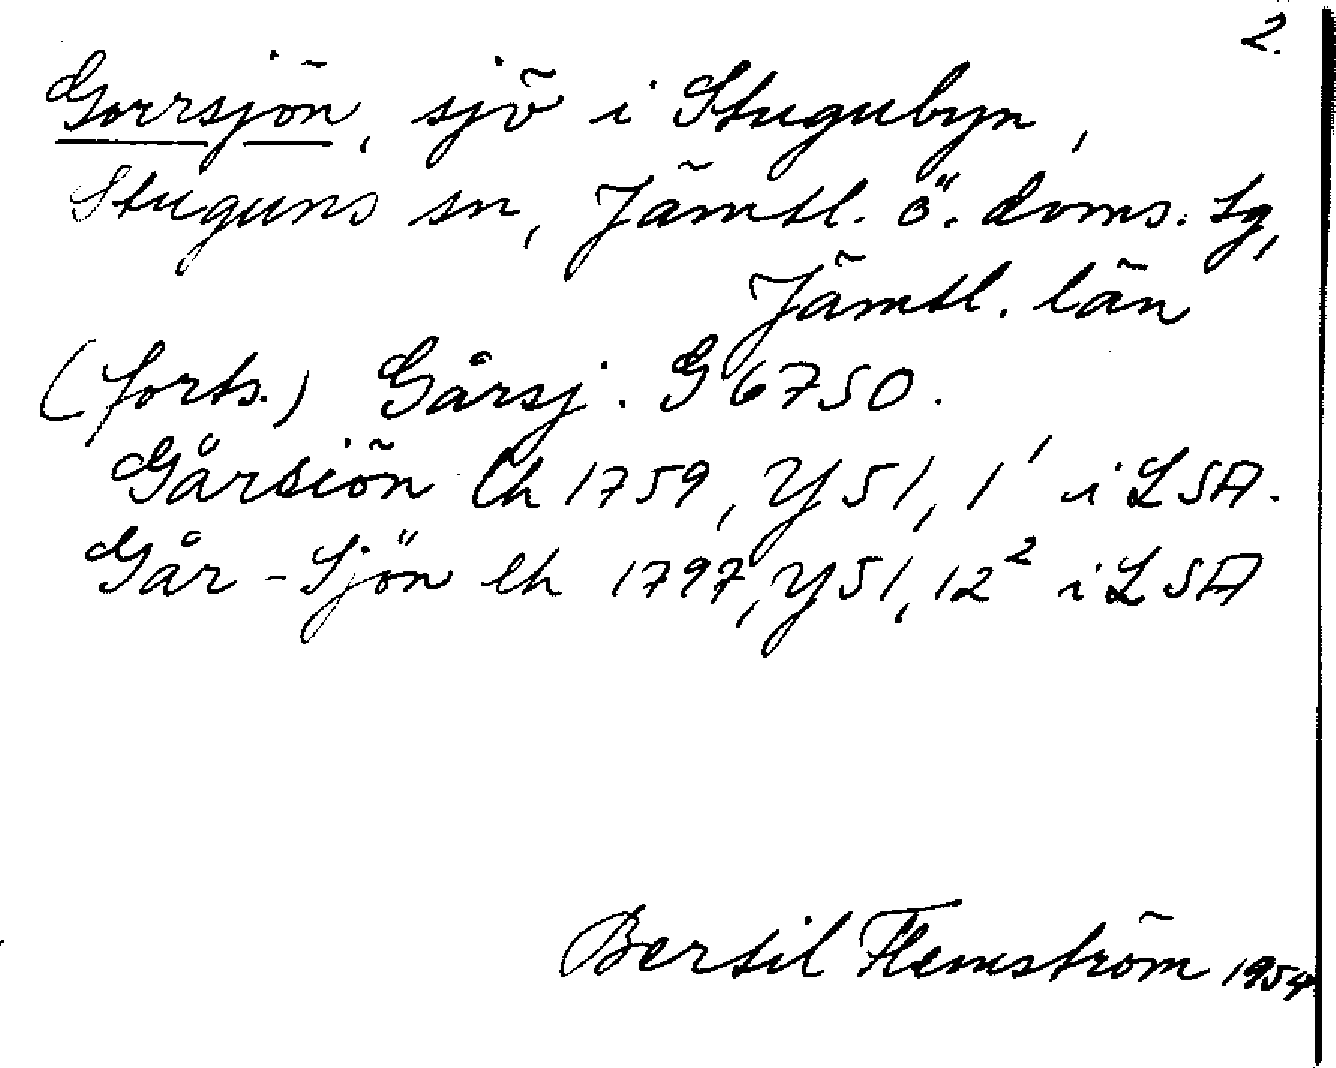 2.
Gorrsjön, sjö i Stugubyn,
Stuguns sn, Jämtl. ö. doms. tg,
Jämtl. län
(forts.) Gårsj. G 6750.
Gårsiön Ch 1759, Y 51, 1¹ i LSA.
Går-Sjön Ch 1797, Y 51, 12² i LSA
Bertil Flemström 1954